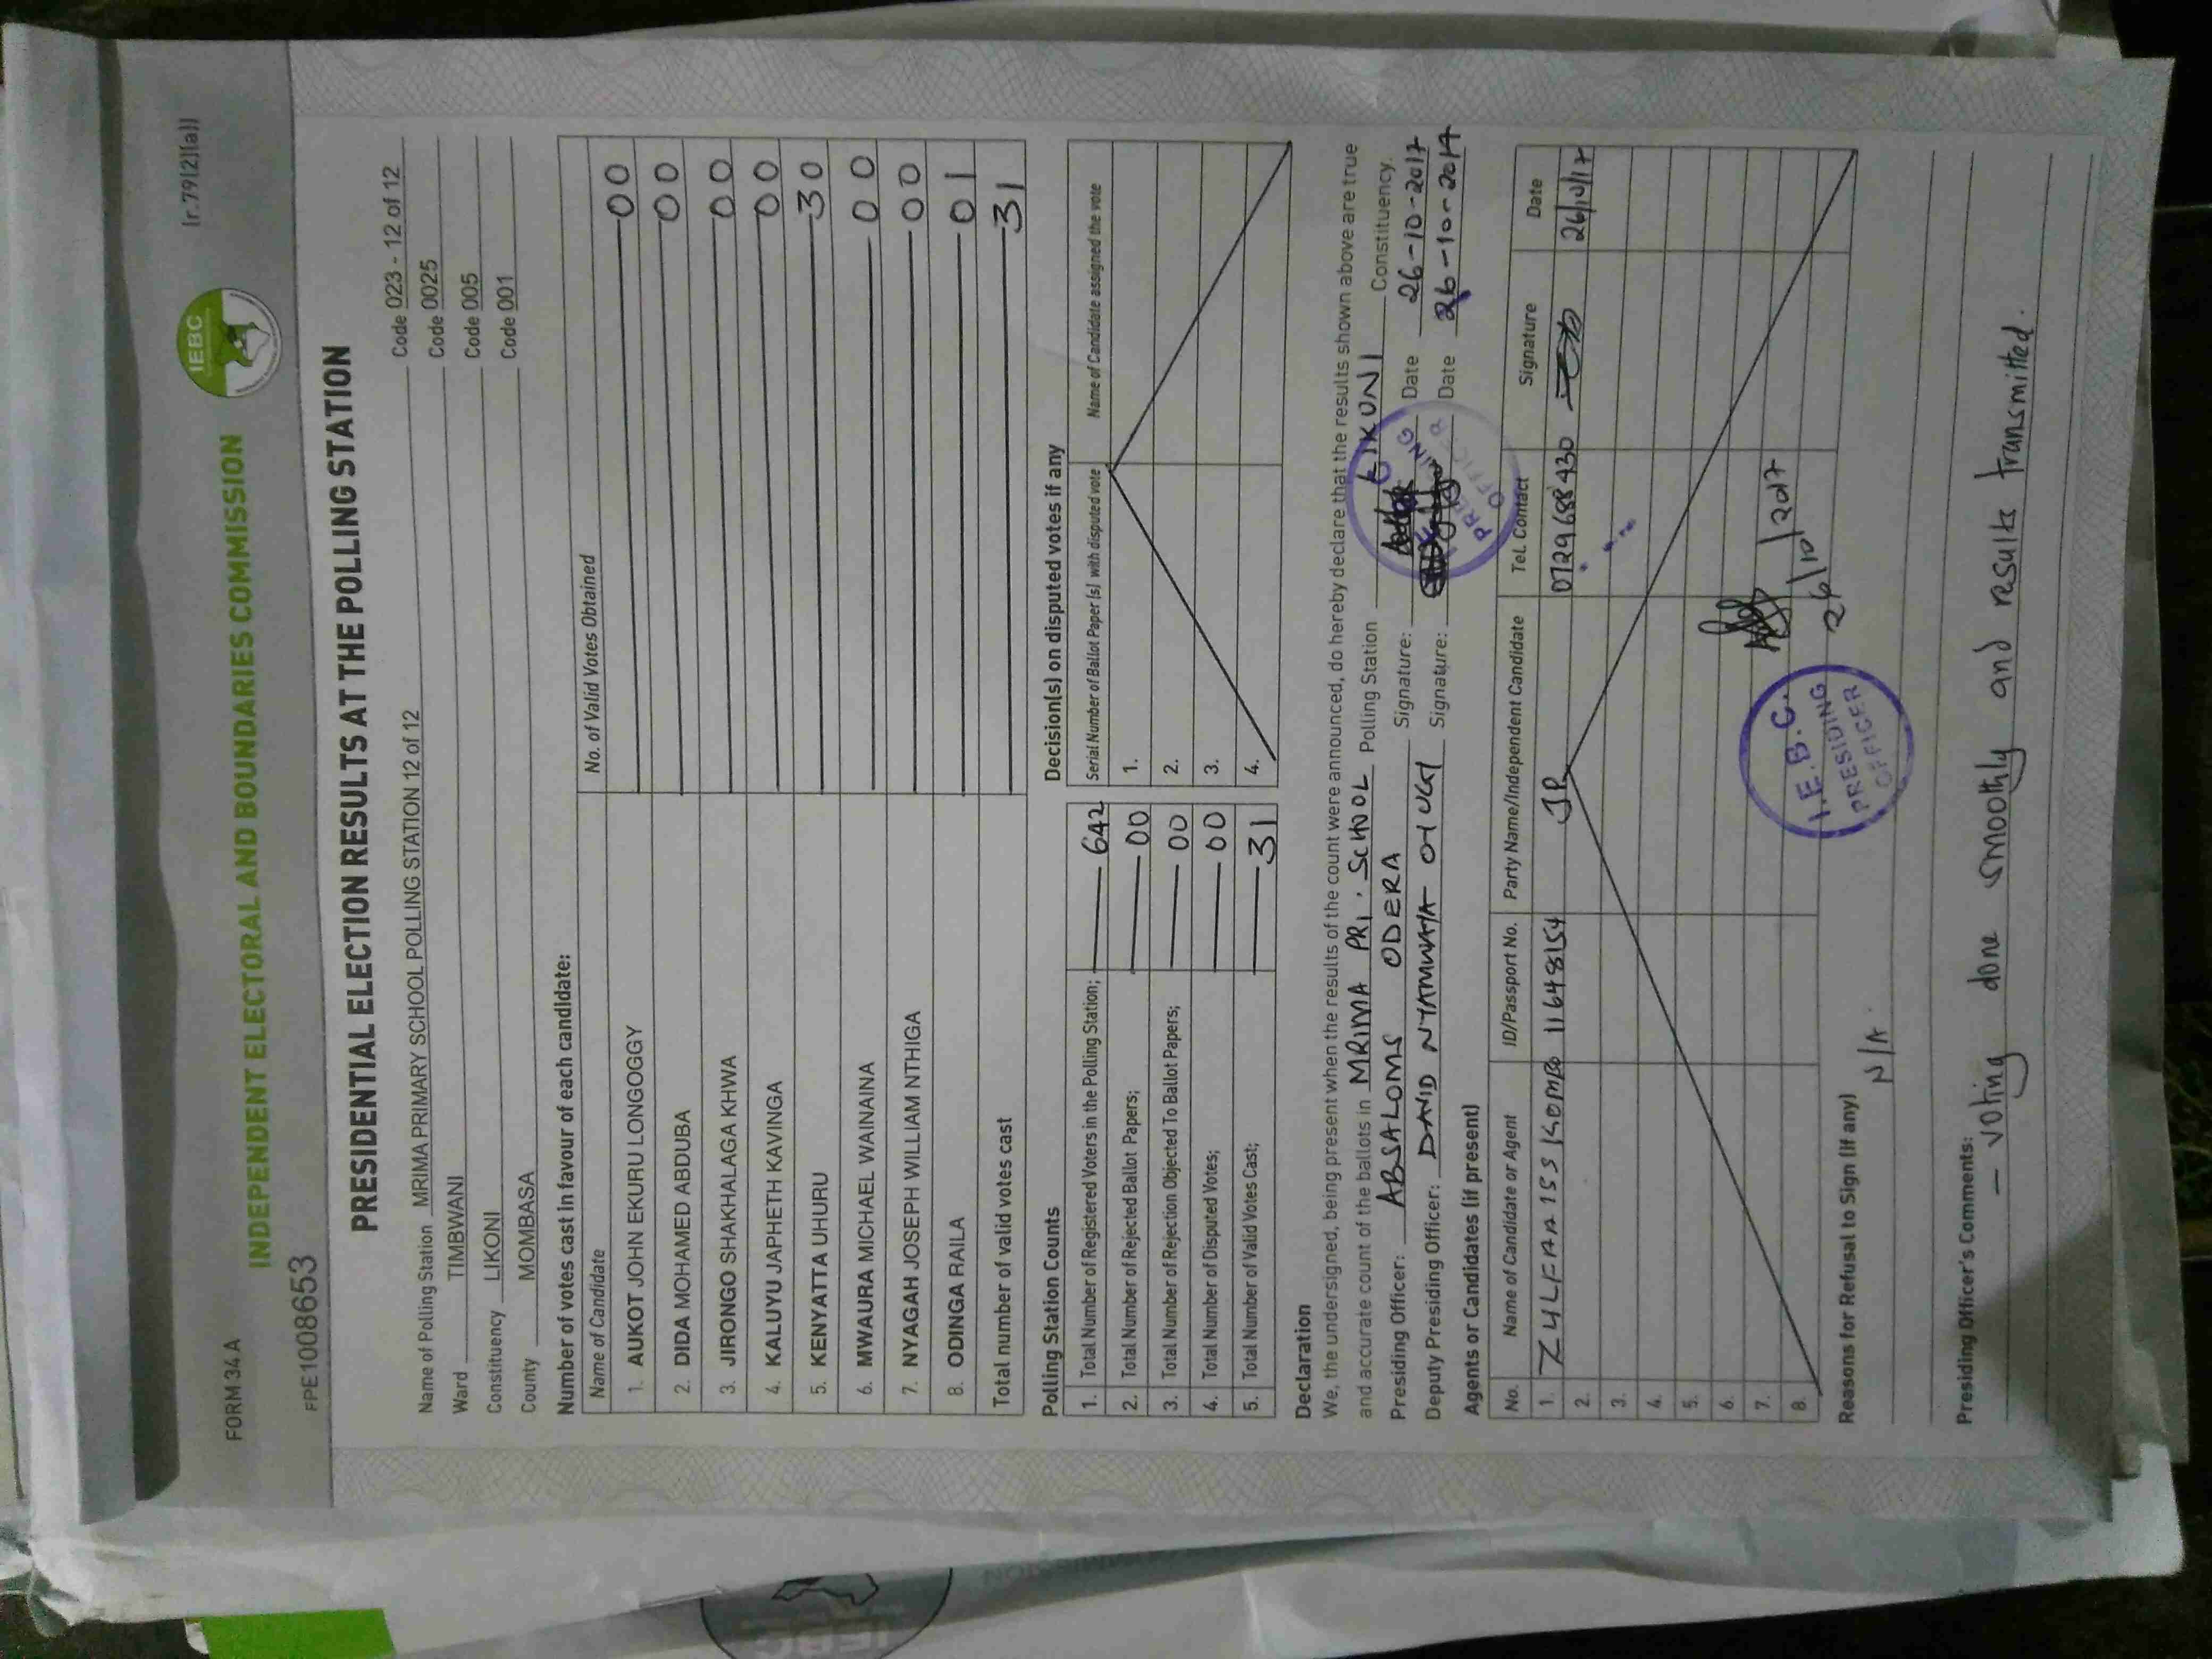 FORM 34 A
[r.79(2)(a)]
IEBC
INDEPENDENT ELECTORAL AND BOUNDARIES COMMISSION
PPE1008653
PRESIDENTIAL ELECTION RESULTS AT THE POLLING STATION
Name of Polling Station MRIMA PRIMARY SCHOOL POLLING STATION 12 of 12 Code 023 - 12 of 12
Ward TIMBWANI Code 0025
Constituency LIKONI Code 005
County MOMBASA Code 001
Number of votes cast in favour of each candidate:
Name of Candidate No. of Valid Votes Obtained
1. AUKOT JOHN EKURU LONGOGGY 00
2. DIDA MOHAMED ABDUBA 00
3. JIRONGO SHAKHALAGA KHWA 00
4. KALUYU JAPHETH KAVINGA 00
5. KENYATTA UHURU 30
6. MWAURA MICHAEL WAINAINA 00
7. NYAGAH JOSEPH WILLIAM NTHIGA 00
8. ODINGA RAILA 01
Total number of valid votes cast 31
Polling Station Counts
1. Total Number of Registered Voters in the Polling Station; 642
2. Total Number of Rejected Ballot Papers; 00
3. Total Number of Rejection Objected To Ballot Papers; 00
4. Total Number of Disputed Votes; 00
5. Total Number of Valid Votes Cast; 31
Decision(s) on disputed votes if any
Serial Number of Ballot Paper (s) with disputed vote Name of Candidate assigned the vote
1.
2.
3.
4.
Declaration
We, the undersigned, being present when the results of the count were announced, do hereby declare that the results shown above are true
and accurate count of the ballots in MRIMA PRI. SCHOOL Polling Station LIKONI Constituency.
Presiding Officer: ABSALOMS ODERA Signature: Date 26-10-2017
Deputy Presiding Officer: DAVID NYAMWAYA OYUGI Signature: Date 26-10-2017
PRESIDING OFFICER
Agents or Candidates (if present)
No. Name of Candidate or Agent ID/Passport No. Party Name/Independent Candidate Tel. Contact Signature Date
1. ZULFA ISS KOMBO 11648154 JP 0729688430 26/10/17
2.
3.
4.
5.
6.
7.
8.
26/10/2017
I.E.B.C.
PRESIDING
OFFICER
Reasons for Refusal to Sign (if any)
N/A.
Presiding Officer's Comments:
- voting done smoothly and results transmitted.
IEBC